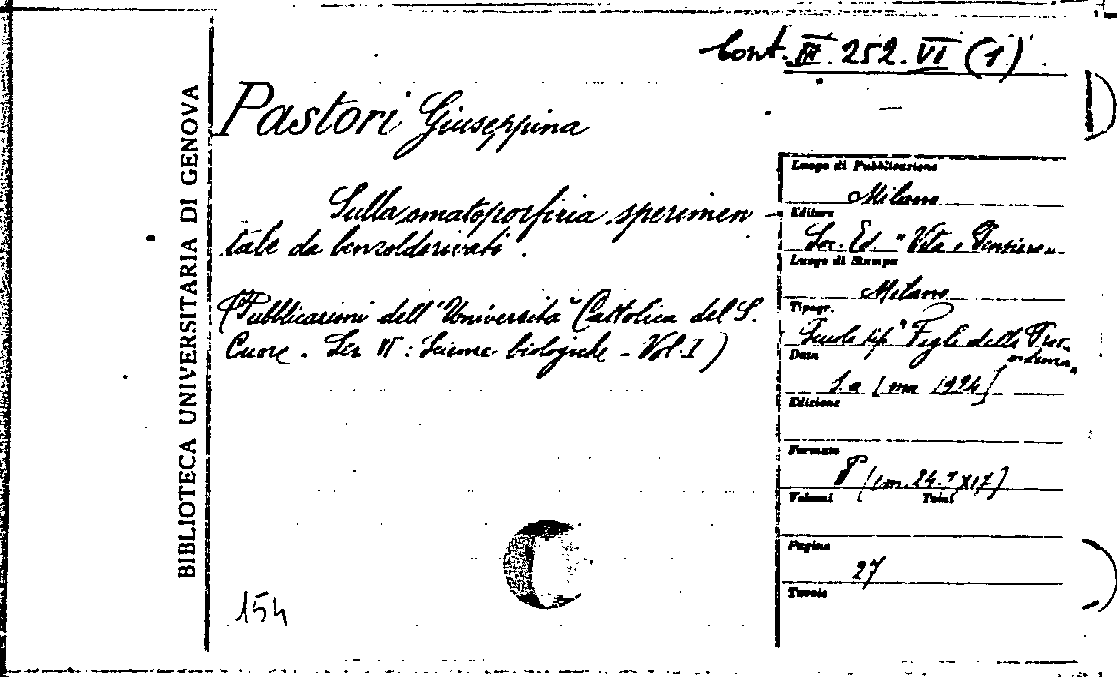 Cont. III. 252. VI (1)
BIBLIOTECA UNIVERSITARIA DI GENOVA
Pastori Giuseppina
Sulla omatoporfiria sperimen-
tale da benzolderivati.
(Pubblicazioni dell'Università Cattolica del S.
Cuore. Ser VI: Scienze biologiche - Vol. I)
154
Luogo di Pubblicazione
Milano
Editore
Soc. Ed. "Vita e Pensiero"
Luogo di Stampa
Milano
Tipogr.
Scuola tip. "Figli della Prov-
videnza"
Data
s.a [ma 1924]
Edizione
Formato
8° (cm. 24.5 X 17)
Volumi Tomi
Pagine
27
Tavole